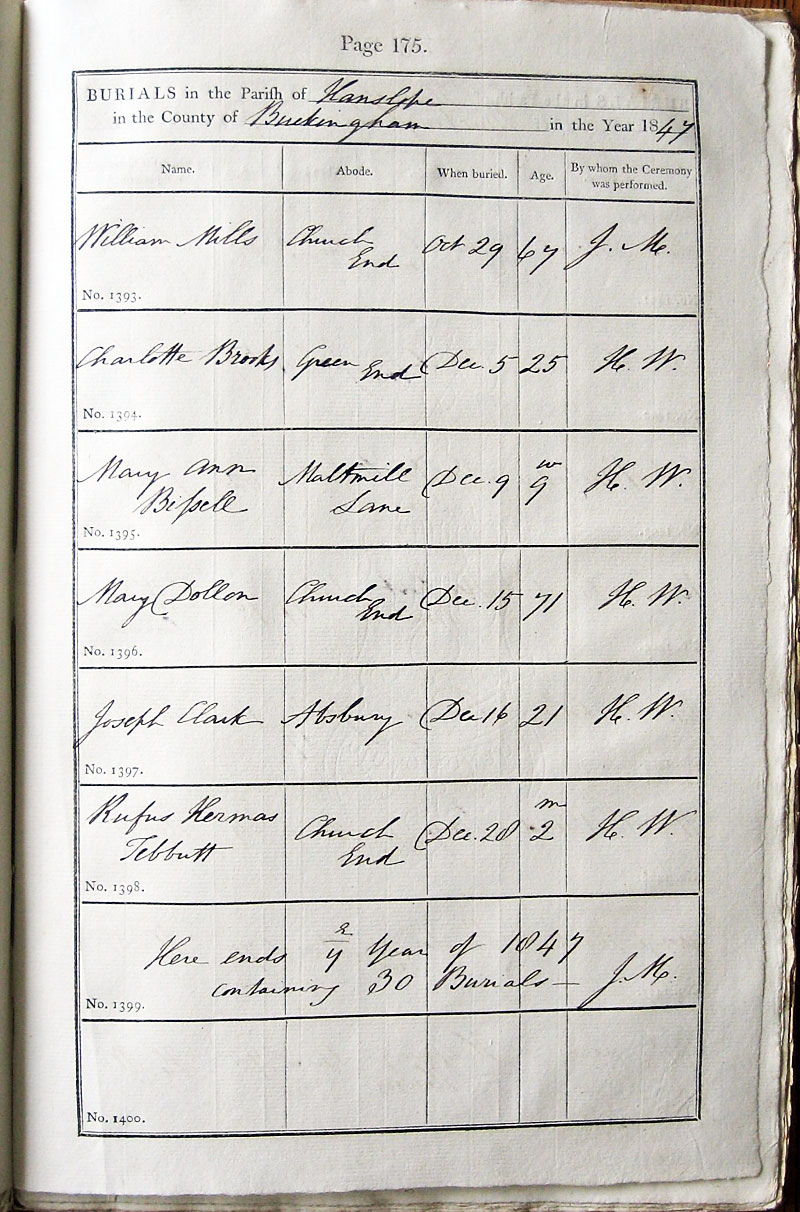 Page 175.
BURIALS in the Pariſh of Hanslope
in the County of Buckingham in the Year 1847
Name. Abode. When buried. Age. By whom the Ceremony was performed.
William Mills Church End Oct 29 67 J. M.
No. 1393.
Charlotte Brooks Green End Dec. 5 25 H. W.
No. 1394.
Mary Ann Maltmill Dec. 9 w 9 H. W.
Biſsell Lane
No. 1395.
Mary Dollon Church End Dec. 15 71 H. W.
No. 1396.
Joseph Clark Absbury Dec 16 21 H. W.
No. 1397.
Rufus Hermas Church Dec. 28 m 2 H. W.
Tebbutt End
No. 1398.
Here ends ye Year of 1847
containing 30 Burials — J. M.
No. 1399.
No. 1400.